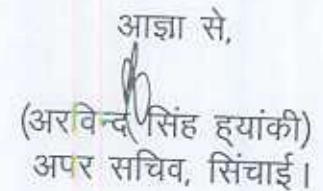 आज्ञा से,
(अरविन्द सिंह ह्यांकी)
अपर सचिव, सिंचाई।